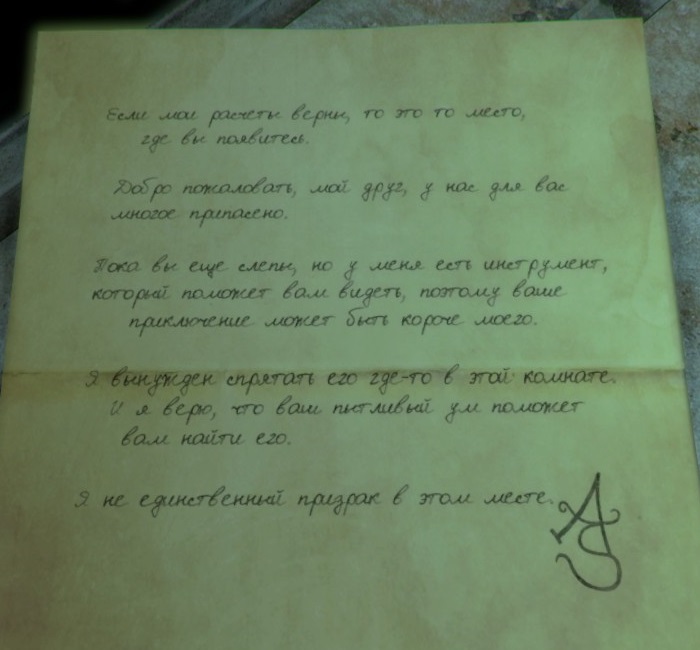 Если мои расчеты верны, то это то место,
где вы появитесь.
Добро пожаловать, мой друг, у нас для вас
многое припасено.
Пока вы еще слепы, но у меня есть инструмент,
который поможет вам видеть, поэтому ваше
приключение может быть короче моего.
Я вынужден спрятать его где-то в этой комнате.
И я верю, что ваш пытливый ум поможет
вам найти его.
Я не единственный призрак в этом месте.
AS